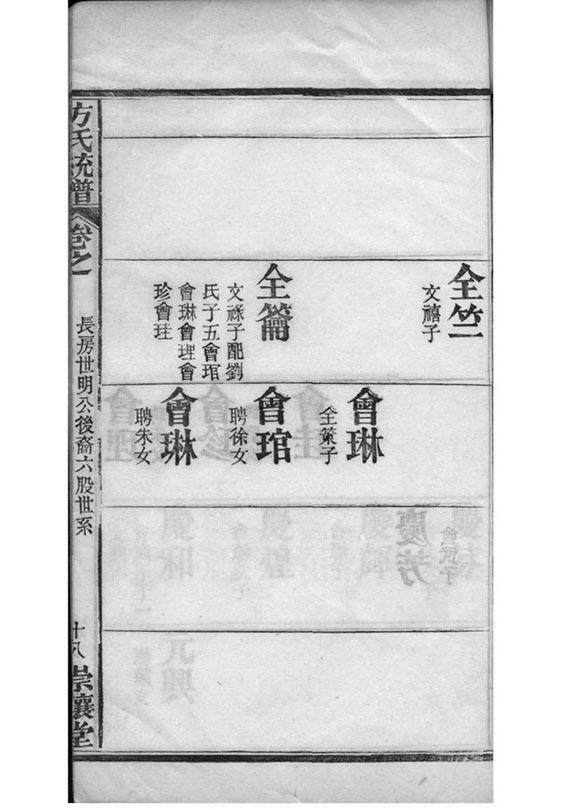 全竺
文禧子
全籥
文祿子配劉
氏子五會琯
會琳會理會
珍會珪
會琳
全策子
會琯
聘徐女
會琳
聘朱女
慶芳
會元子
方氏統譜 卷之一
長房世明公後裔六股世系
十八
崇讓堂